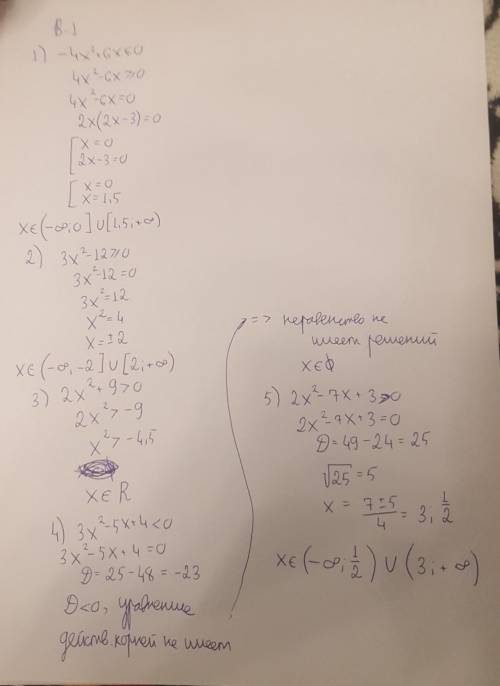 В.1
1) -4x²+6x≤0
4x²-6x≥0
4x²-6x=0
2x(2x-3)=0
[x=0
2x-3=0
[x=0
x=1,5
x∈(-∞;0]∪[1,5;+∞)
2) 3x²-12≥0
3x²-12=0
3x²=12
x²=4
x=±2
x∈(-∞,-2]∪[2;+∞)
3) 2x²+9>0
2x²>-9
x²>-4,5
x∈R
4) 3x²-5x+4<0
3x²-5x+4=0
D=25-48=-23
D<0, уравнение
действ. корней не имеет
=> неравенство не
имеет решений
x∈∅
5) 2x²-7x+3>0
2x²-7x+3=0
D=49-24=25
√25=5
x=(7±5)/4=3; 1/2
x∈(-∞; 1/2)∪(3;+∞)